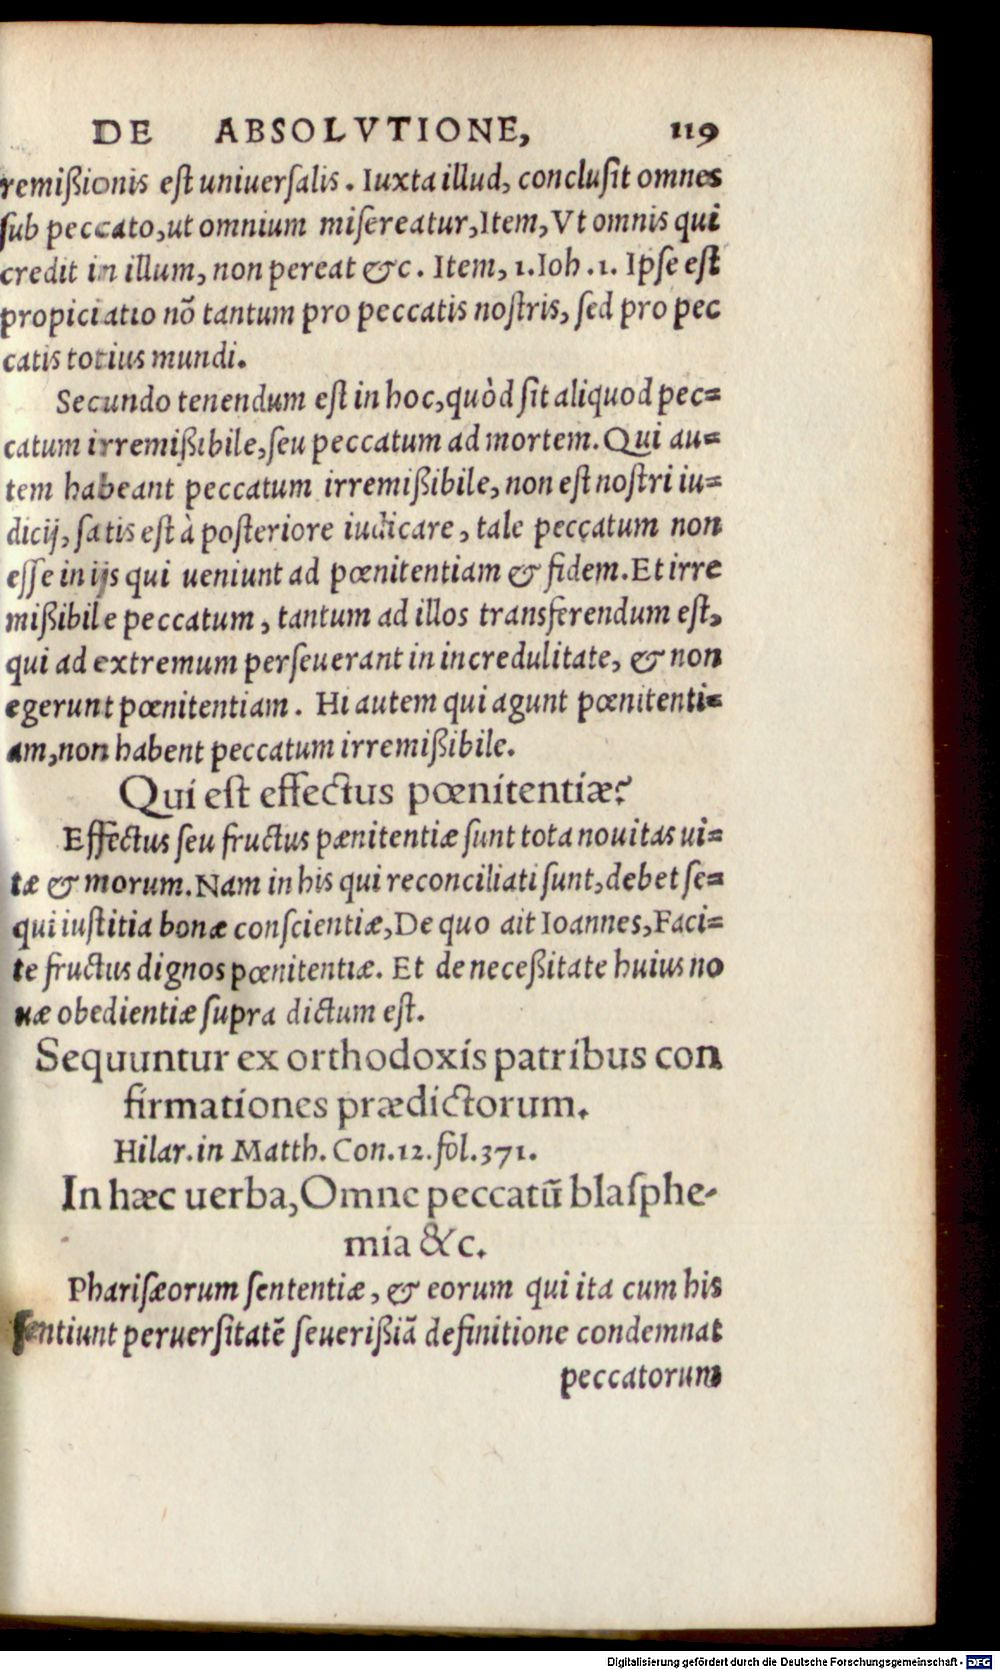 DE ABSOLVTIONE, 119
remißionis eſt uniuerſalis. Iuxta illud, concluſit omnes
ſub peccato, ut omnium miſereatur, Item, Vt omnis qui
credit in illum, non pereat &c. Item, 1. Ioh. 1. Ipſe eſt
propiciatio nõ tantum pro peccatis noſtris, ſed pro pec
catis totius mundi.
Secundo tenendum eſt in hoc, quòd ſit aliquod pec=
catum irremißibile, ſeu peccatum ad mortem. Qui au=
tem habeant peccatum irremißibile, non eſt noſtri iu=
dicij, ſatis eſt à poſteriore iudicare, tale peccatum non
eſſe in ijs qui ueniunt ad pœnitentiam & fidem. Et irre
mißibile peccatum, tantum ad illos transferendum eſt,
qui ad extremum perſeuerant in incredulitate, & non
egerunt pœnitentiam. Hi autem qui agunt pœnitenti=
am, non habent peccatum irremißibile.
Qui eſt effectus pœnitentiæ?
Effectus ſeu fructus pænitentiæ ſunt tota nouitas ui=
tæ & morum. Nam in his qui reconciliati ſunt, debet ſe=
qui iuſtitia bonæ conſcientiæ, De quo ait Ioannes, Faci=
te fructus dignos pœnitentiæ. Et de neceßitate huius no
uæ obedientiæ ſupra dictum eſt.
Sequuntur ex orthodoxis patribus con
firmationes prædictorum.
Hilar. in Matth. Con. 12. fol. 371.
In hæc uerba, Omne peccatũ blaſphe-
mia &c.
Phariſæorum ſententiæ, & eorum qui ita cum his
ſentiunt peruerſitatẽ ſeuerißiã definitione condemnat
peccatorum
Digitalisierung gefördert durch die Deutsche Forschungsgemeinschaft - DFG